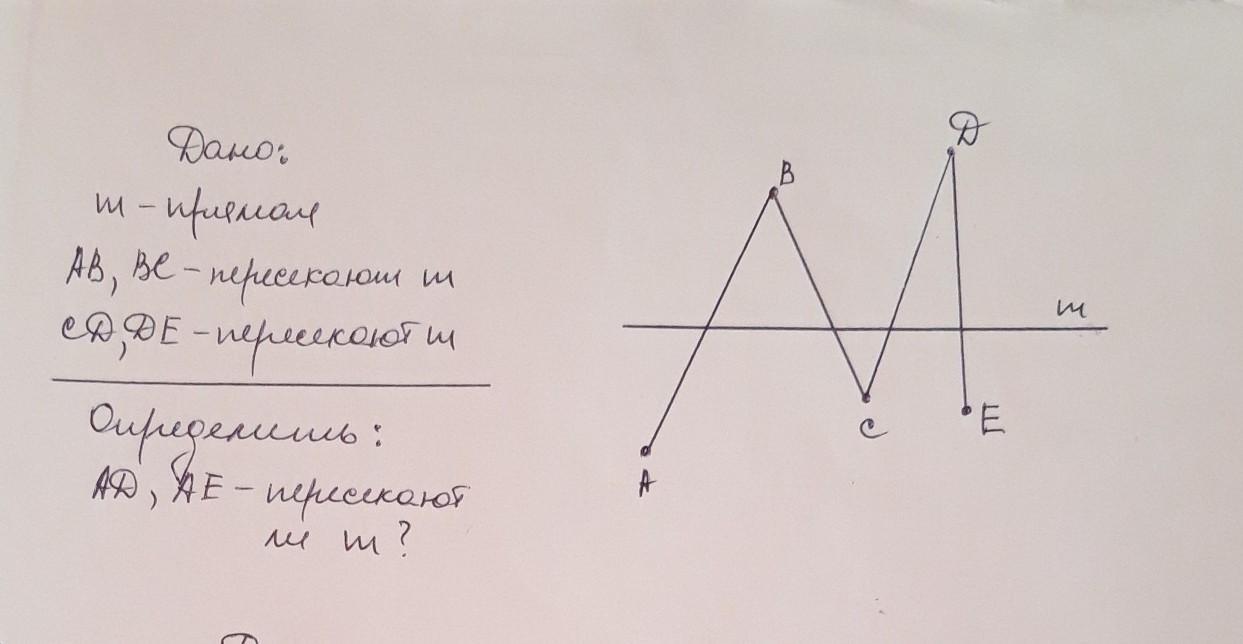 Дано:
m – прямая
AB, BC – пересекают m
CD, DE – пересекают m
Определить:
AD, AE – пересекают
ли m?
D
B
m
C
E
A